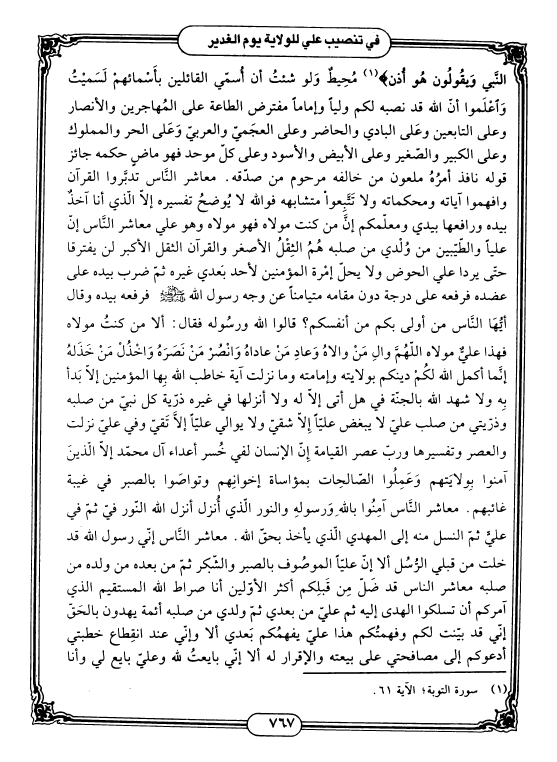 في تنصيب علي للولاية يوم الغدير
النَّبي وَيقُولُون هُو أُذن﴾(١) مُحِيطٌ وَلو شئتُ أن أُسمّي القائلين بأسْمائهمْ لَسَميْتُ
وَاَعْلَموا أنّ الله قد نصبه لكم ولياً وإماماً مفترض الطاعة على المُهاجرين والأنصار
وعلى التابعين وعَلى البادي والحاضر وعلى العجَميّ والعربيّ وَعَلى الحر والمملوك
وعلى الكبير والصّغير وعلى الأبيض والأسود وعلى كلّ موحد فهو ماضٍ حكمه جائز
قوله نافذ أمرُهُ ملعون من خالفه مرحوم من صدّقه. معاشر النَّاس تدبَّروا القرآن
وافهموا آياته ومحكماته ولا تَتَّبعواْ متشابهه فوالله لا يُوضحُ تفسيره إلاّ الّذي أنا آخذٌ
بيده ورافعها بيدي ومعلّمكم إنَّ من كنت مولاه فهو مولاه وهو علي معاشر النَّاس إنّ
علياً والطّيّبين من وُلْدي من صلبه هُمُ الثِقْلُ الأصغر والقرآن الثقل الأكبر لن يفترقا
حتّى يردا علي الحوض ولا يحلّ إمْرة المؤمنين لأحد بَعدي غيره ثمّ ضرب بيده على
عضده فرفعه على درجة دون مقامه متيامناً عن وجه رسول الله ﷺ فرفعه بيده وقال
أيُّهَا النَّاس من أولى بكم من أنفسكم؟ قالوا الله ورسُوله فقال: ألا من كنتُ مولاه
فهذا عليٌ مولاه اللّهُمَّ والِ مَنْ والاهُ وَعادِ مَنْ عاداهُ وَانْصُرْ مَنْ نَصَرَهُ وَاخْذُلْ مَنْ خَذَلَهُ
إنَّما أكمل الله لكُمْ دينكم بولايته وإمامته وما نزلت آية خاطب الله بِها المؤمنين إلاّ بَدأ
بِه ولا شهد الله بالجنّة في هل أتى إلاّ له ولا أنزلها في غيره ذرّية كل نبيّ من صلبه
وذرّيتي من صلب عليّ لا يبغض عليّاً إلاّ شقيّ ولا يوالي عليّاً إلاَّ تَقيّ وفي عليّ نزلت
والعصر وتفسيرها وربّ عصر القيامة إنّ الإنسان لفي خُسر أعداء آل محمّد إلاّ الّذينَ
آمنوا بِولايَتهم وَعَمِلُوا الصّالحات بمؤاساة إخوانِهم وتواصَوا بالصبر في غيبة
غائبهم. معاشر النَّاس آمِنُوا بالله وَرسولِهِ والنور الّذي أُنزل أنزل الله النّور فيّ ثمّ في
عليٍّ ثمّ النسل منه إلى المهدي الّذي يأخذ بحقّ الله. معاشر النَّاس إنّي رسول الله قد
خلت من قبلي الرُّسُل ألا إنّ عليّاً الموصُوف بالصبر والشّكر ثمّ من بعده من ولده من
صلبه معاشر الناس قد ضَلّ مِن قَبلِكم أكثر الأوّلين أنا صراط الله المستقيم الذي
آمركم أن تسلكوا الهدى إليه ثم عليّ من بعدي ثمّ ولدي من صلبه أئمة يهدون بالحَقّ
إنّي قد بيّنت لكم وفهمتُكم هذا عليّ يفهمُكم بَعدي ألا وإنّي عند انقِطاع خطبتي
أدعوكم إلى مصافحتي على بيعته والإقرار له ألا إنّي بايعتُ لله وعليّ بايع لي وأنا
(١) سورة التوبة؛ الآية ٦١.
٧٦٧